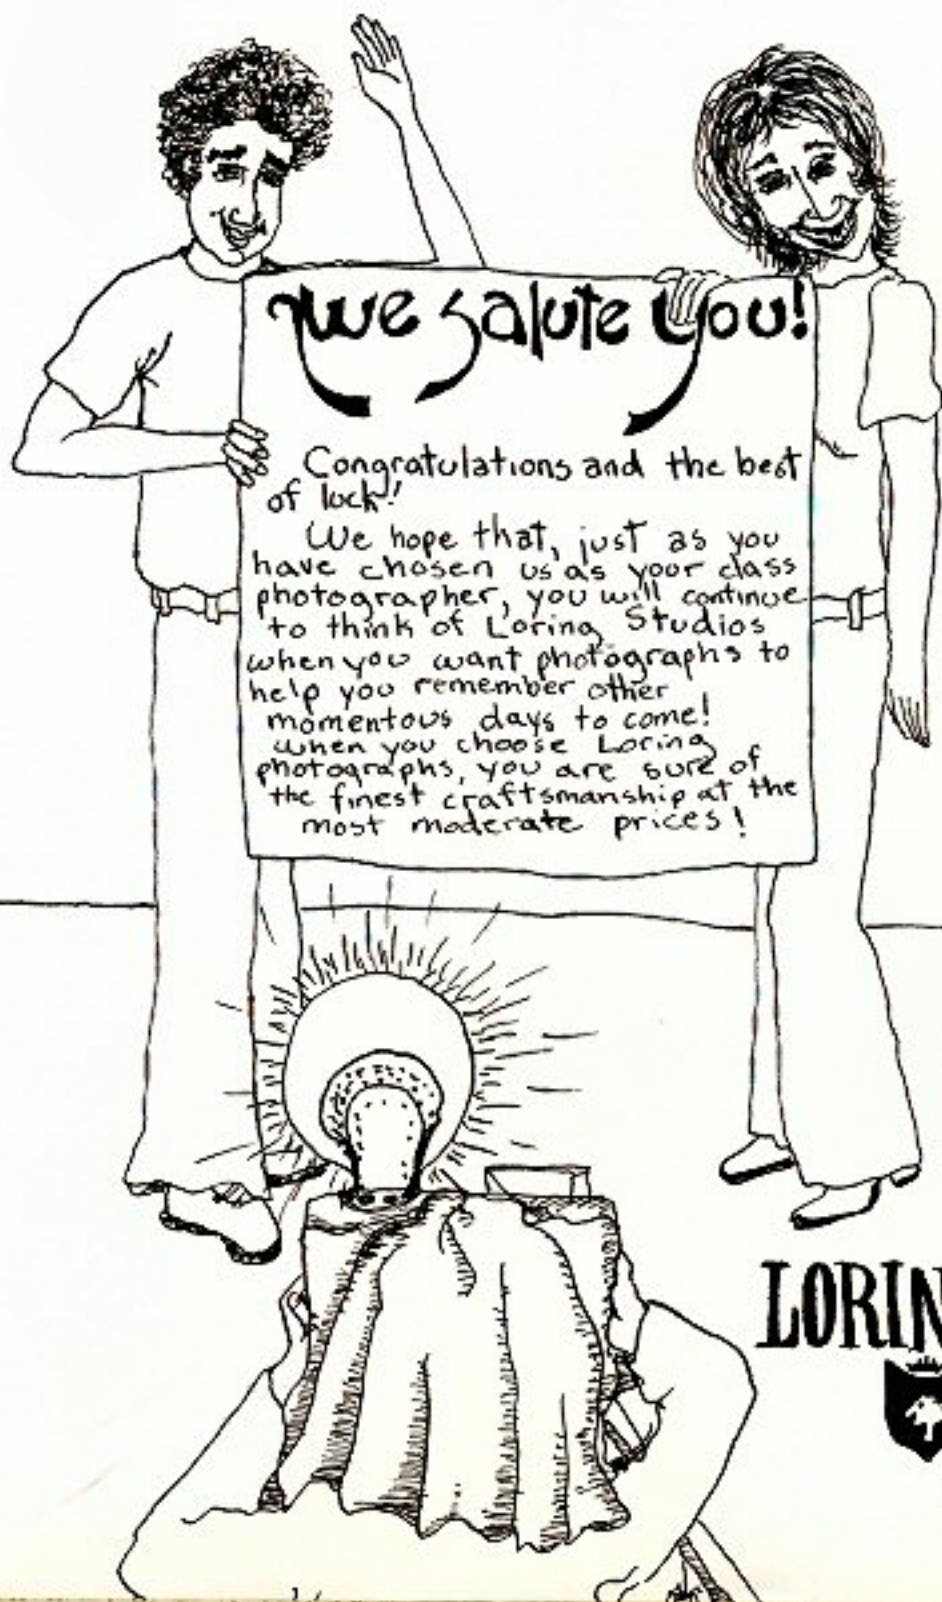 We Salute You!
Congratulations and the best
of luck!
We hope that, just as you
have chosen us as your class
photographer, you will continue
to think of Loring Studios
when you want photographs to
help you remember other
momentous days to come!
when you choose Loring
photographs, you are sure of
the finest craftsmanship at the
most moderate prices!
LORIN